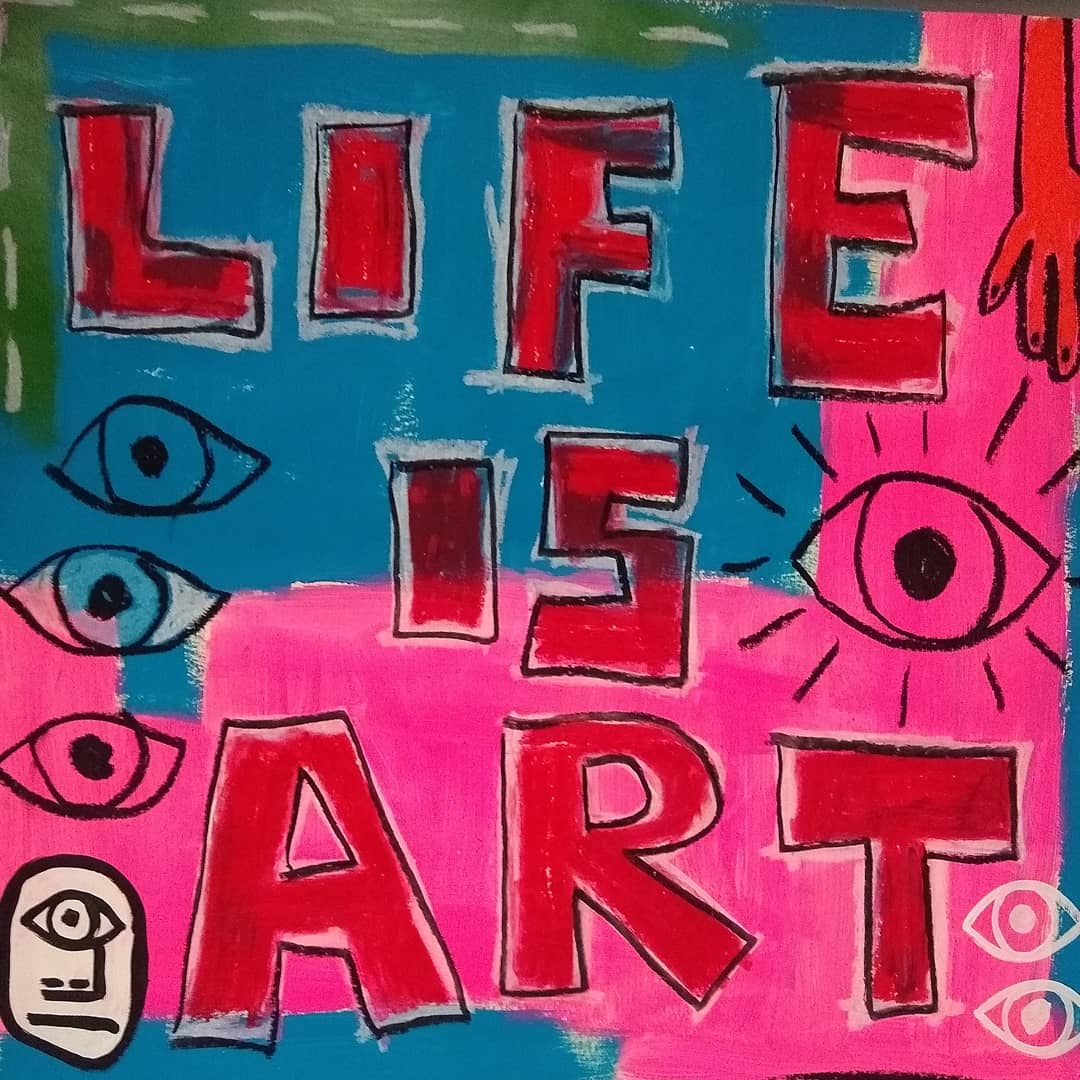 LIFE
IS
ART